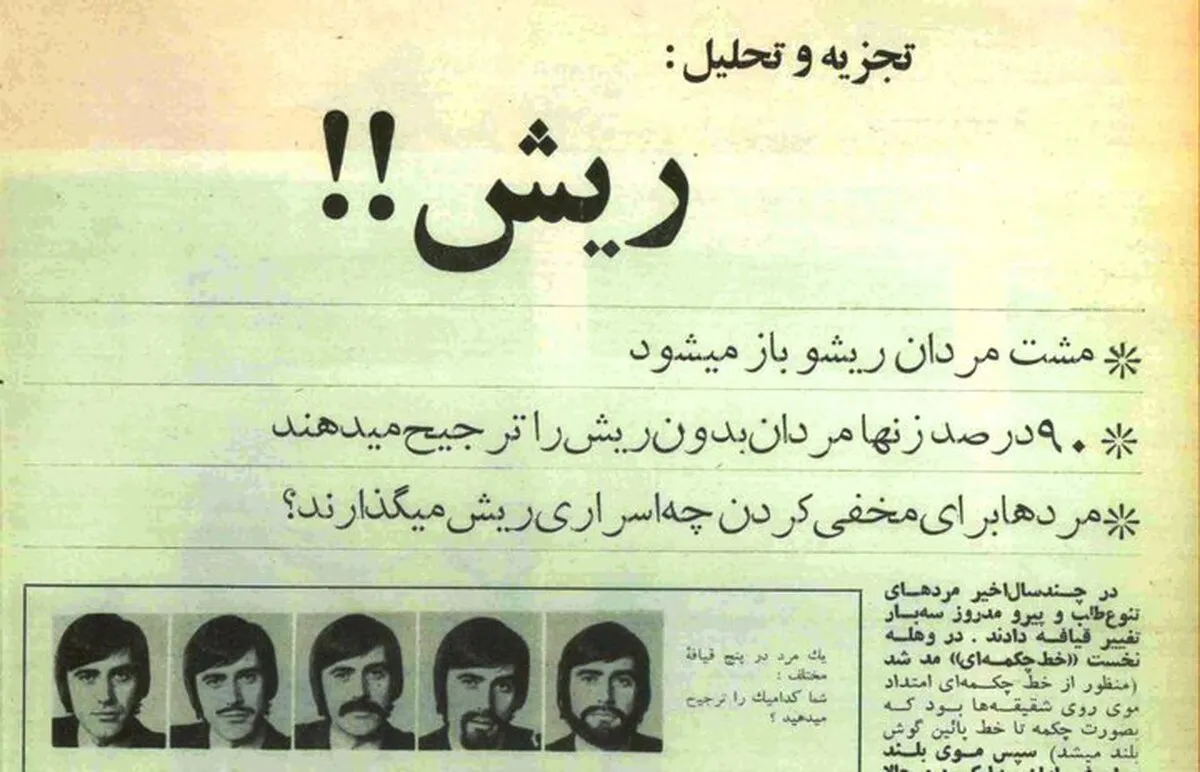 تجزیه و تحلیل :
ریش !!
* مشت مردان ریشو باز میشود
* ۹۰ درصد زنها مردان بدون ریش را ترجیح میدهند
* مردها برای مخفی کردن چه اسراری ریش میگذارند؟
در چندسال اخیر مردهای
تنوع‌طلب و پیرو مدروز سه‌بار
تغییر قیافه دادند . در وهله
نخست «خط چکمه‌ای» مد شد
(منظور از خط چکمه‌ای امتداد
موی روی شقیقه‌ها بود که
بصورت چکمه تا خط پائین گوش
بلند میشد) سپس موی بلند
یك مرد در پنج قیافهٔ
مختلف :
شما کدامیك را ترجیح
میدهید ؟